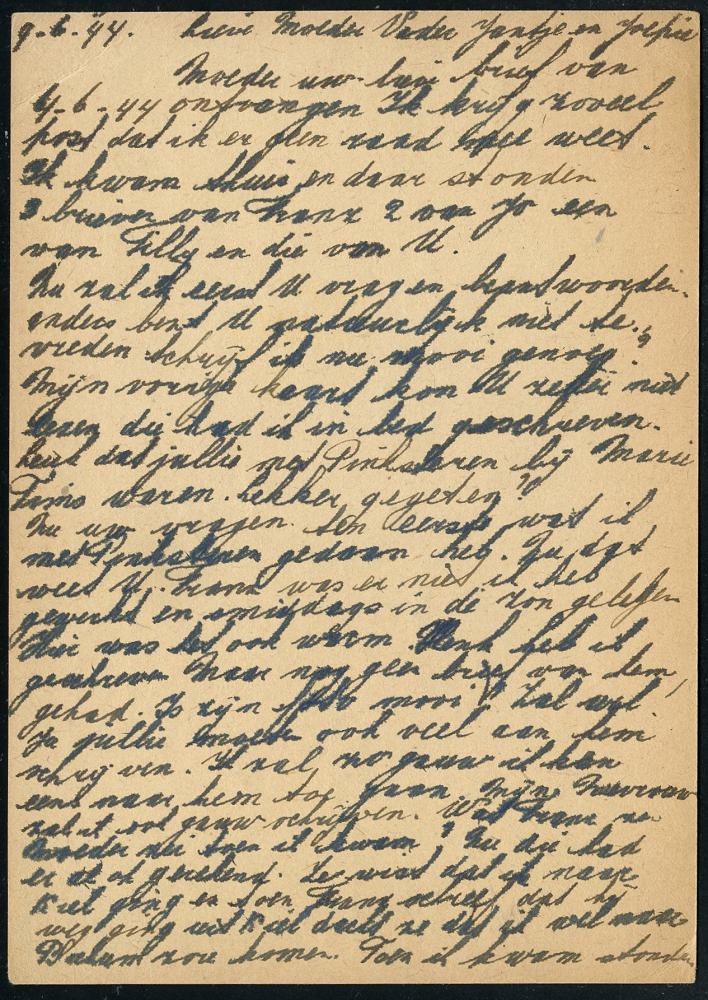 9-6-44. Lieve Moeder Vader Jantje en Joepie
Moeder uw lieve brief van
4-6-44 ontvangen Ik krijg zoveel
post dat ik er geen raad mee weet.
Ik kwam thuis en daar stonden
3 brieven van Frans 2 van Jo een
van Tilly en die van U.
Nu zal ik eerst U vragen beantwoorden.
anders bent U natuurlijk niet te.
vreden schrijf ik nu mooi genoeg?
Mijn vorige kaart kon U zeker niet
lezen die had ik in bed geschreven.
Leuk dat jullie met Pinksteren bij Marie
waren. Lekker gegeten?
Nu uw vragen. Ten eerste wat ik
met Pinksteren gedaan heb. Ja dat
weet U. Frans was er niet ik heb
gewerkt en smiddags in de zon gelegen
Hier was het ook warm. Henk heb ik
geschreven maar nog geen brief van hem
gehad. Is zijn foto mooi? Zal wel
Ja jullie moeten ook veel aan hem
schrijven. Ik zal zo gauw ik kan
eens naar hem toe gaan. Mijn
zal ik ook gauw schrijven. Wat Frans zn
Moeder zei toen ik kwam? Nu die had
er al op gerekend. Ze wist dat ik naar
Kiel ging en toen Frans schreef dat hij
weg ging uit Kiel dacht ze dat ik wel naar
zou komen. Toen ik kwam stonden